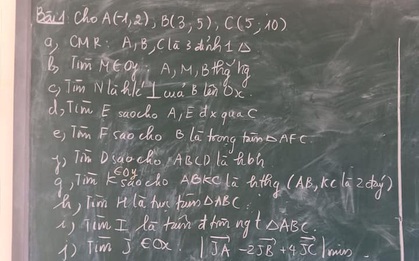 Bài 1: Cho A(-1,2), B(3,5), C(5;10)
a, CMR: A, B, C là 3 đỉnh 1 Δ
b, Tìm M∈Oy: A, M, B thg hg
c, Tìm N là h/c ⊥ của B lên Ox.
d, Tìm E sao cho A, E đx qua C
e, Tìm F sao cho B là trọng tâm ΔAFC.
f, Tìm D sao cho ABCD là hbh
g, Tìm K∈Oy sao cho ABKC là hthg (AB, KC là 2 đáy)
h, Tìm H là trực tâm ΔABC.
i, Tìm I là tâm đ tròn ng t ΔABC.
j, Tìm J ∈Ox |JA - 2JB + 4JC| min